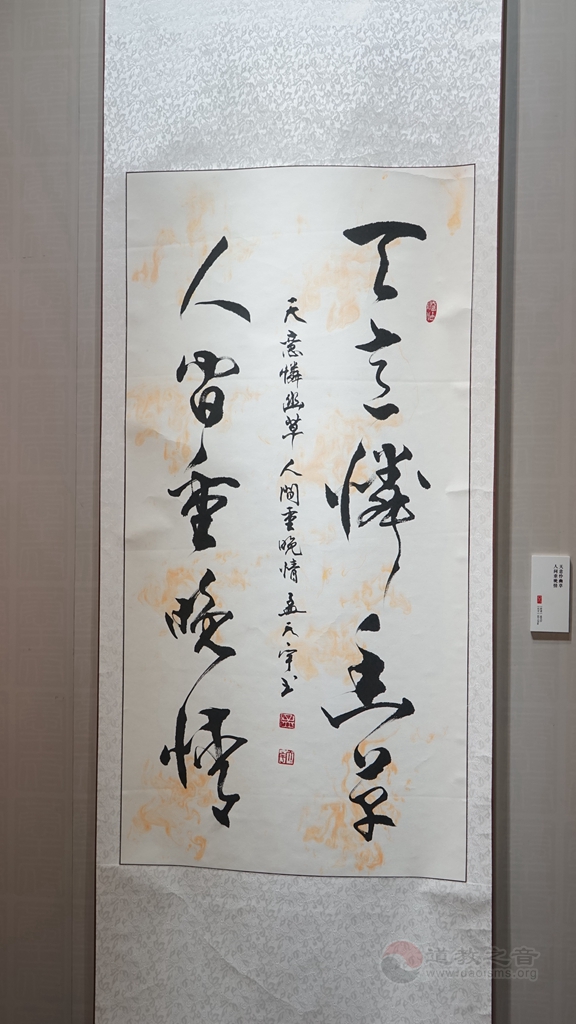 天意怜幽草
天意憐幽草 人間重晚情 孟天宇书
人间重晚情
天意怜幽草
人间重晚情
道教之音
www.daoisms.org